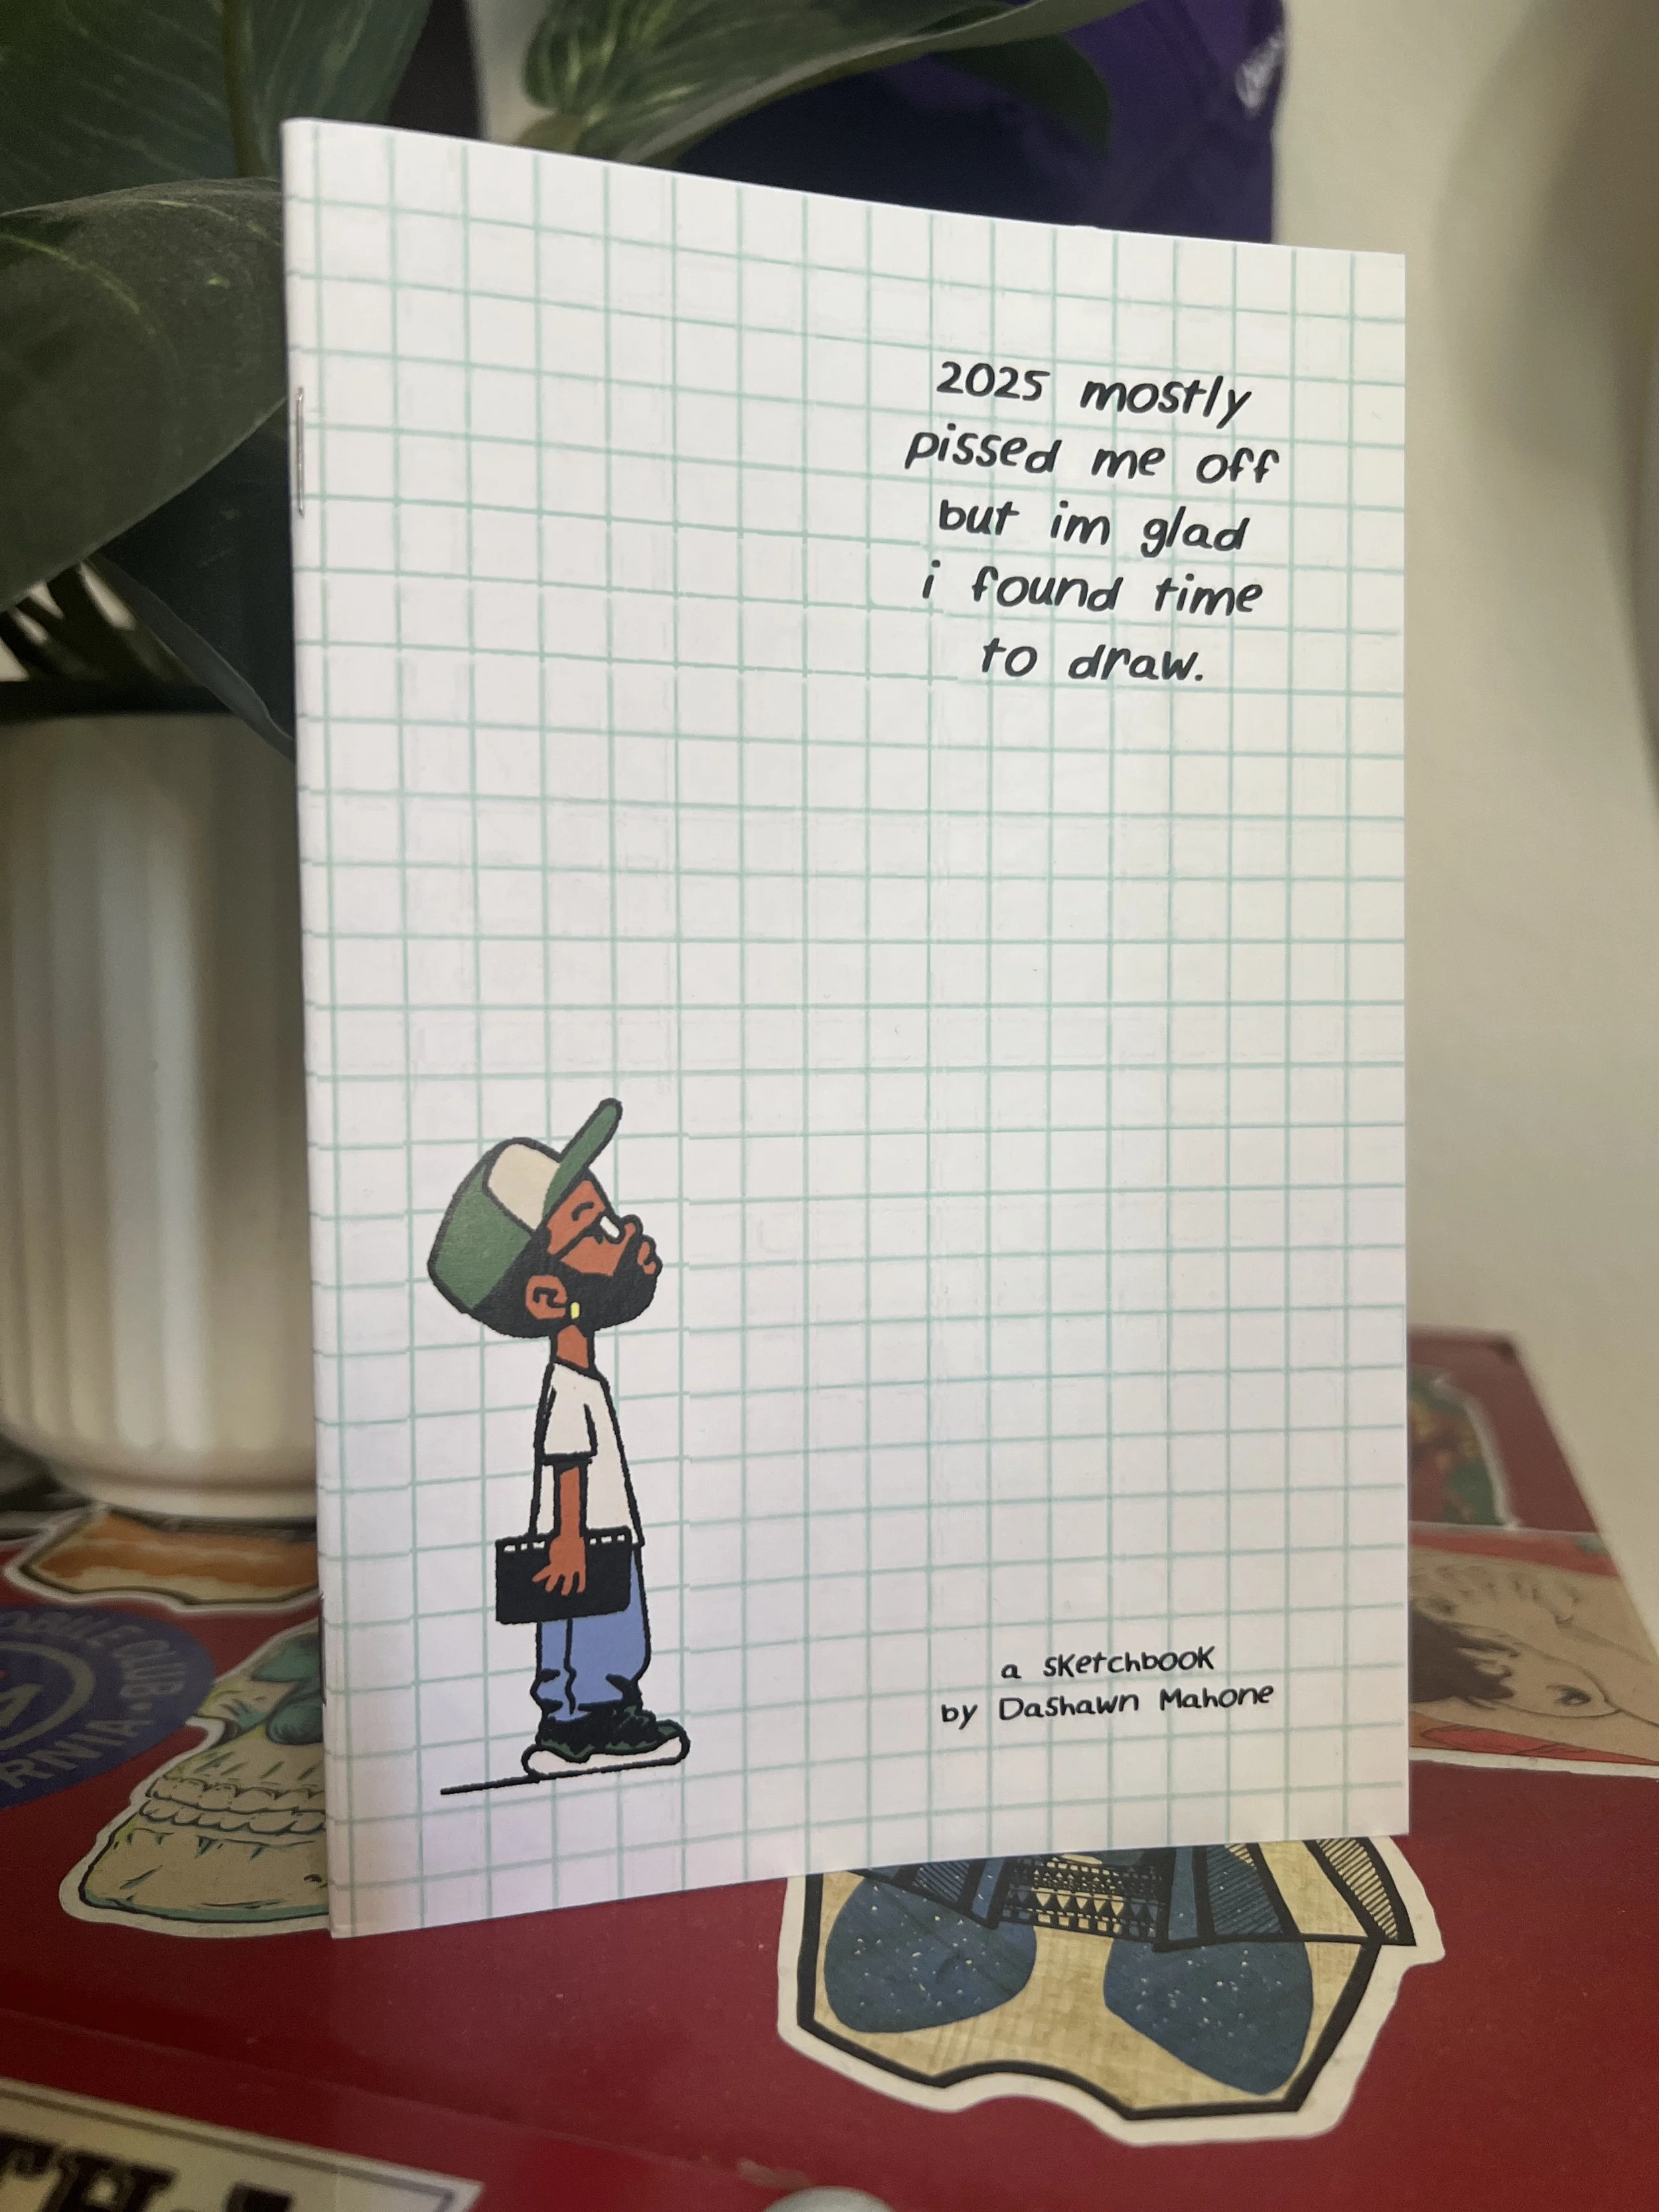 2025 mostly
pissed me off
but im glad
i found time
to draw.
a sketchbook
by DaShawn Mahone